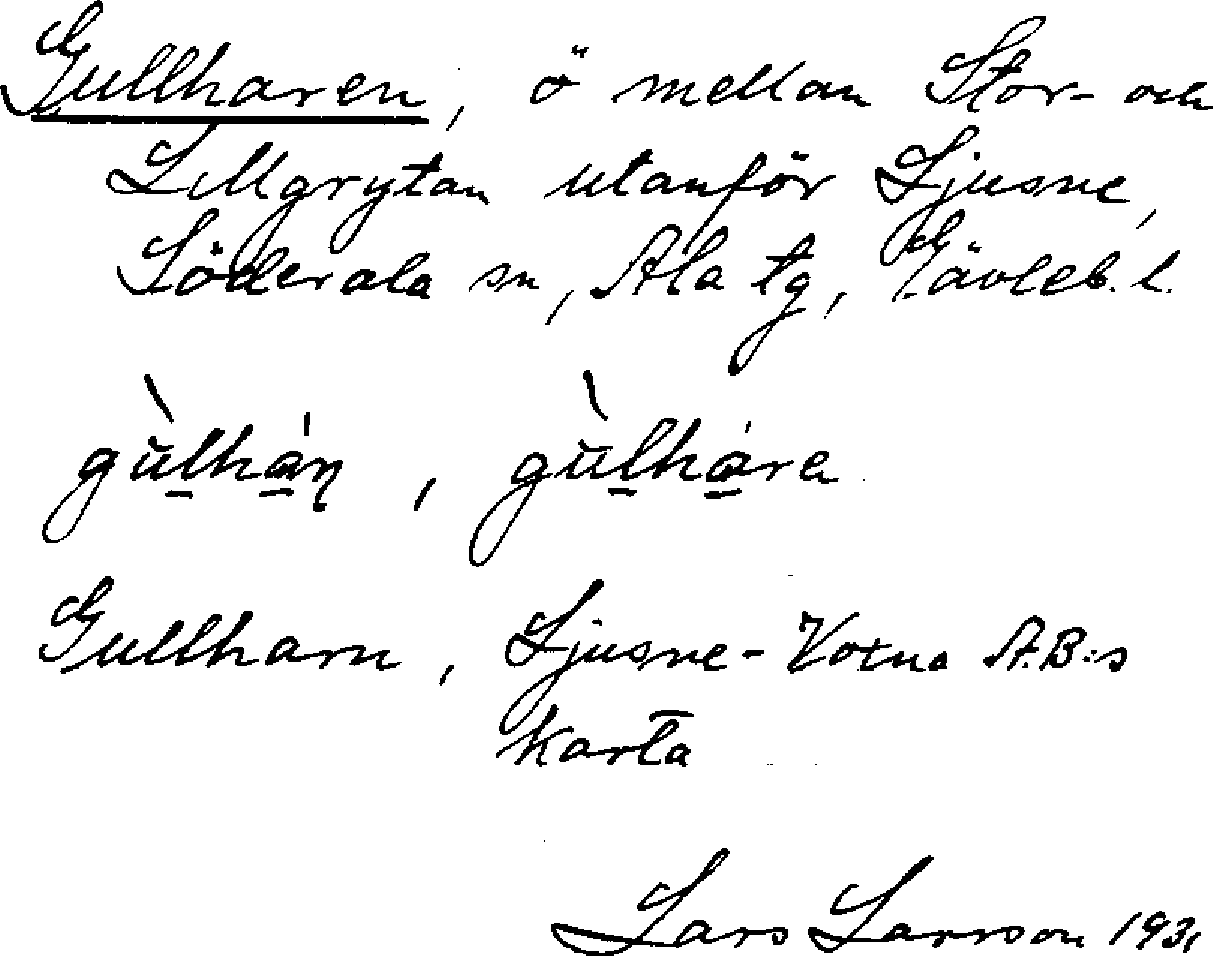 Gullharen, ö mellan Stor- och
Lillgrytan utanför Ljusne,
Söderala sn, Ala tg, Gävleb. l.
gùlhán, gùlhára
Gullharn, Ljusne-Voxna A.B:s
karta
Lars Larsson 1931